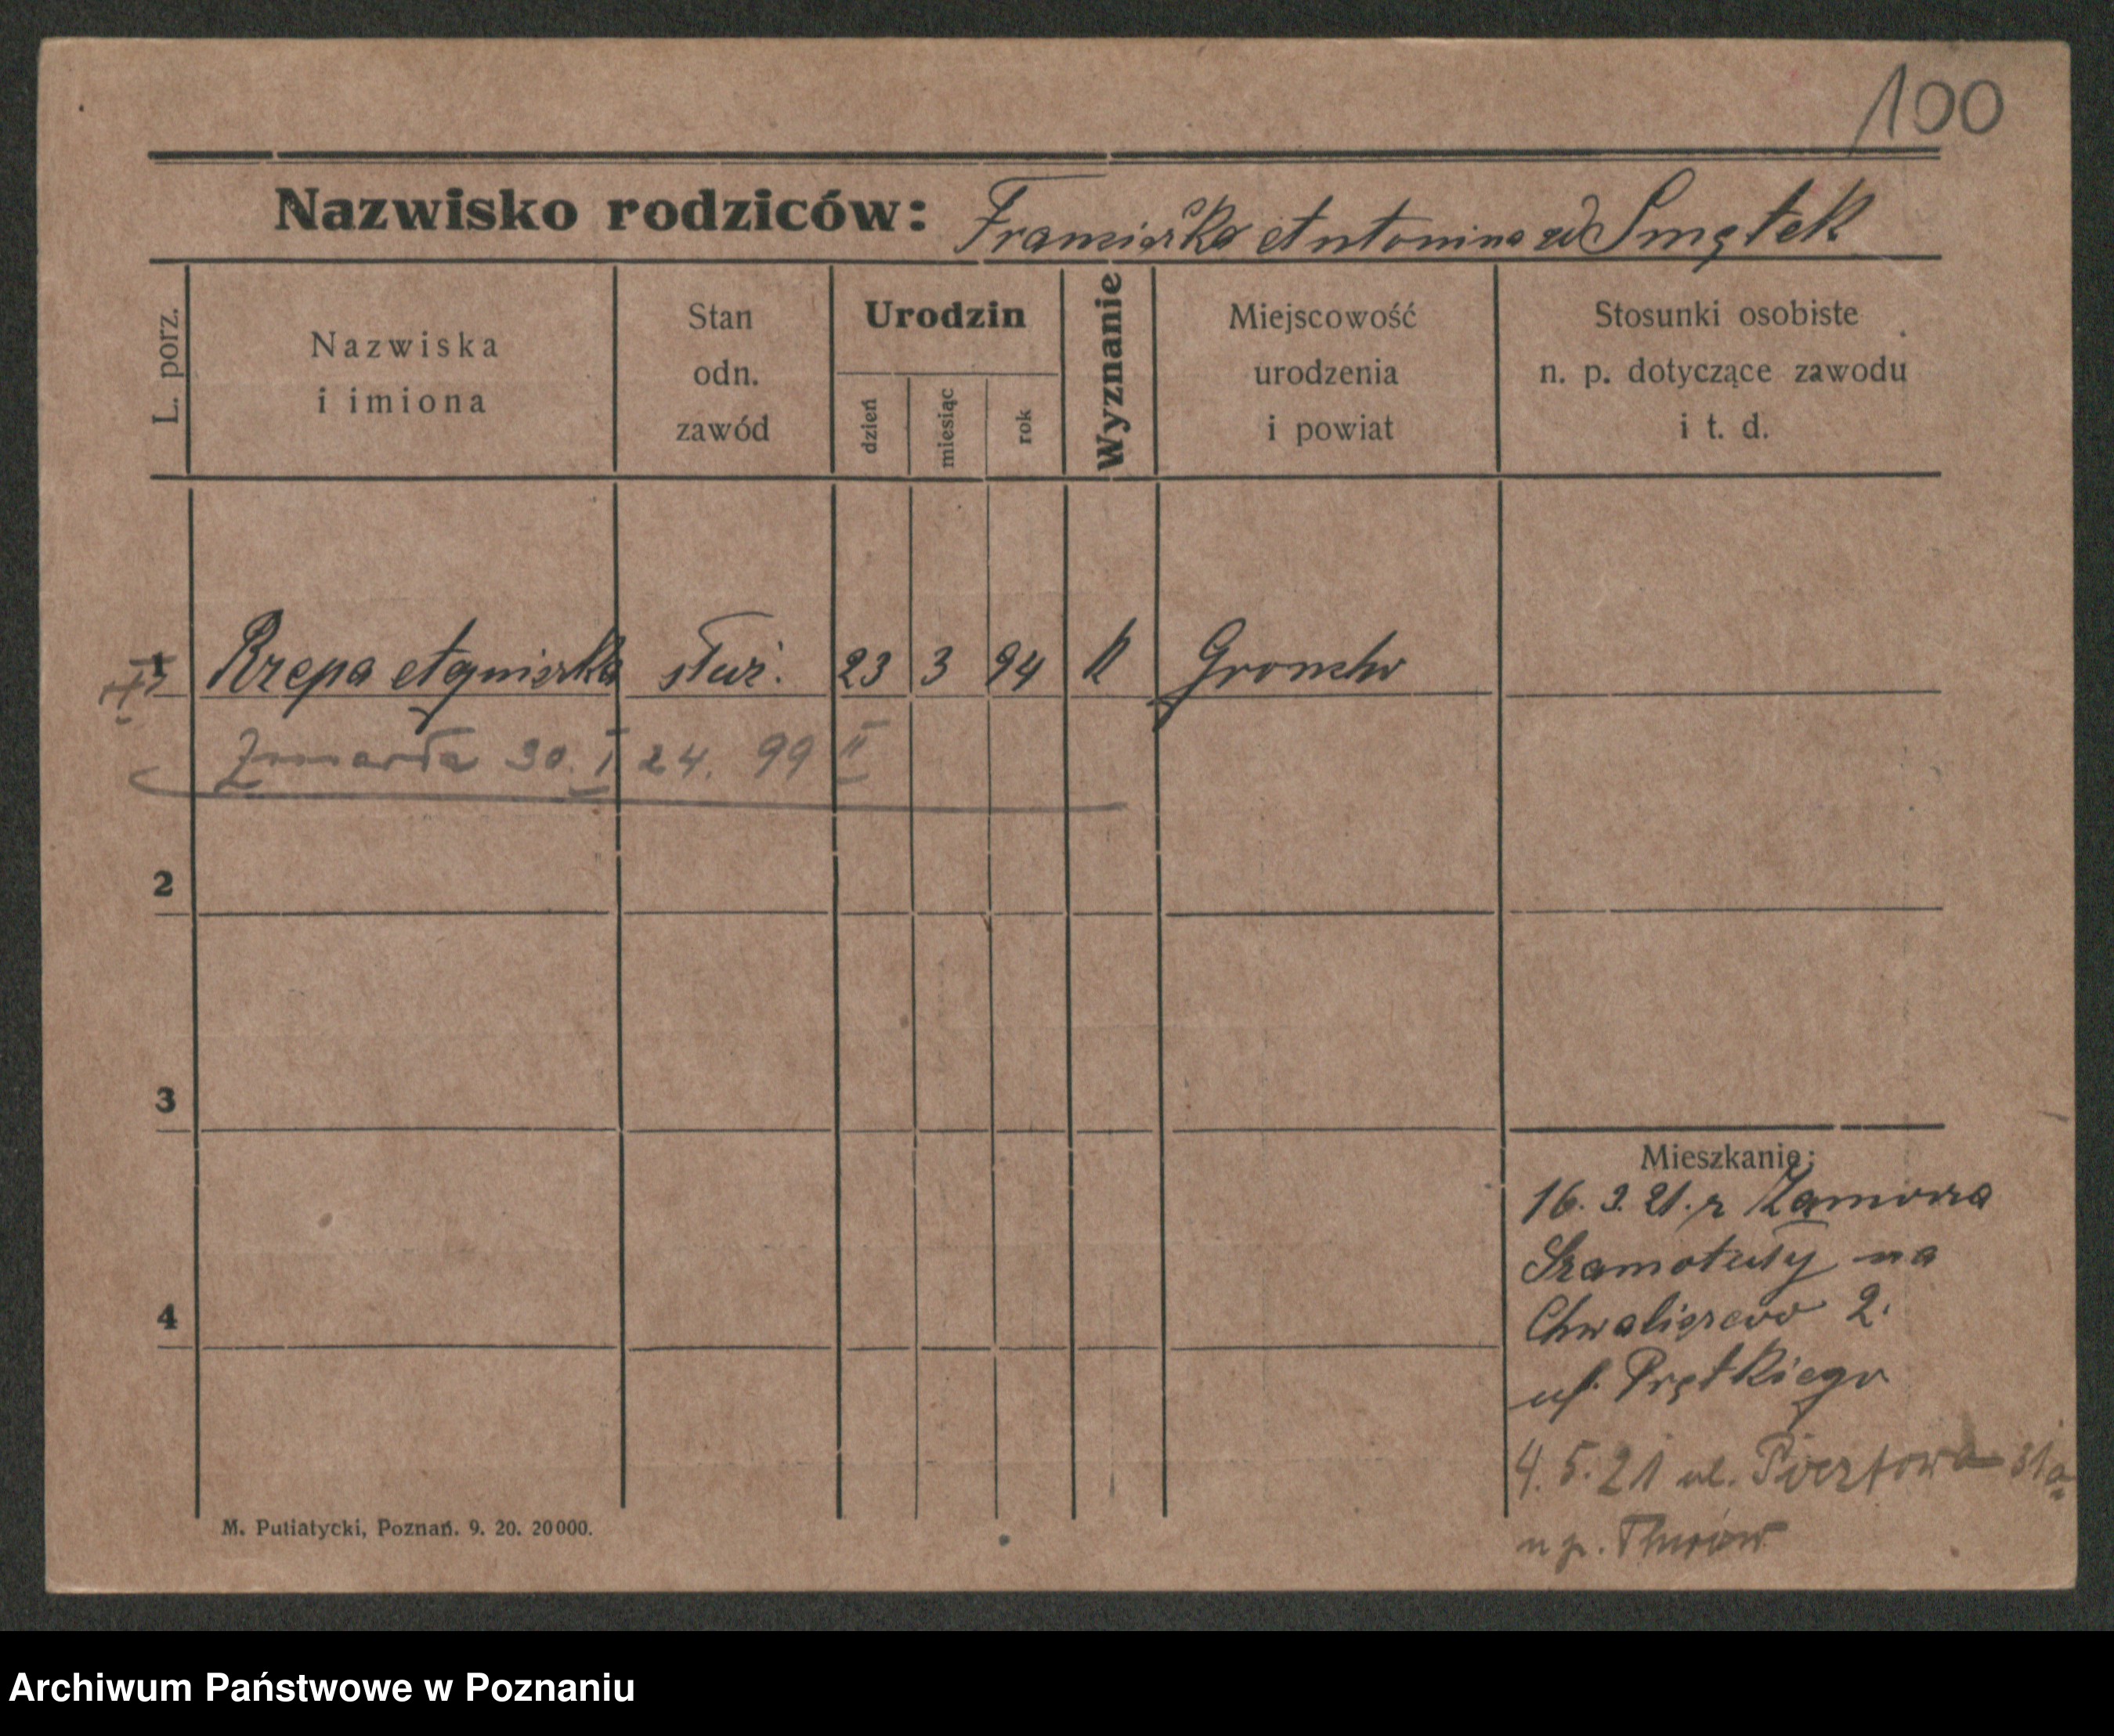 100
Nazwisko rodziców: Franciszka Antonina zd Smętek
L. porz.
Nazwiska
i imiona
Stan
odn.
zawód
Urodzin
dzień
miesiąc
rok
Wyznanie
Miejscowość
urodzenia
i powiat
Stosunki osobiste
n. p. dotyczące zawodu
i t. d.
1 Rzepa Agnieszka służ. 23 3 94 K
Zmarła 30. I 24. 99 II
2
3
4
Mieszkanie:
16. 3. 21. r
Szamotuły na
Chwaliszewo 2.
ul. Prętkiego
4. 5. 21 ul. Pocztowa 31a
u p.
M. Putiatycki, Poznań. 9. 20. 20000.
Archiwum Państwowe w Poznaniu